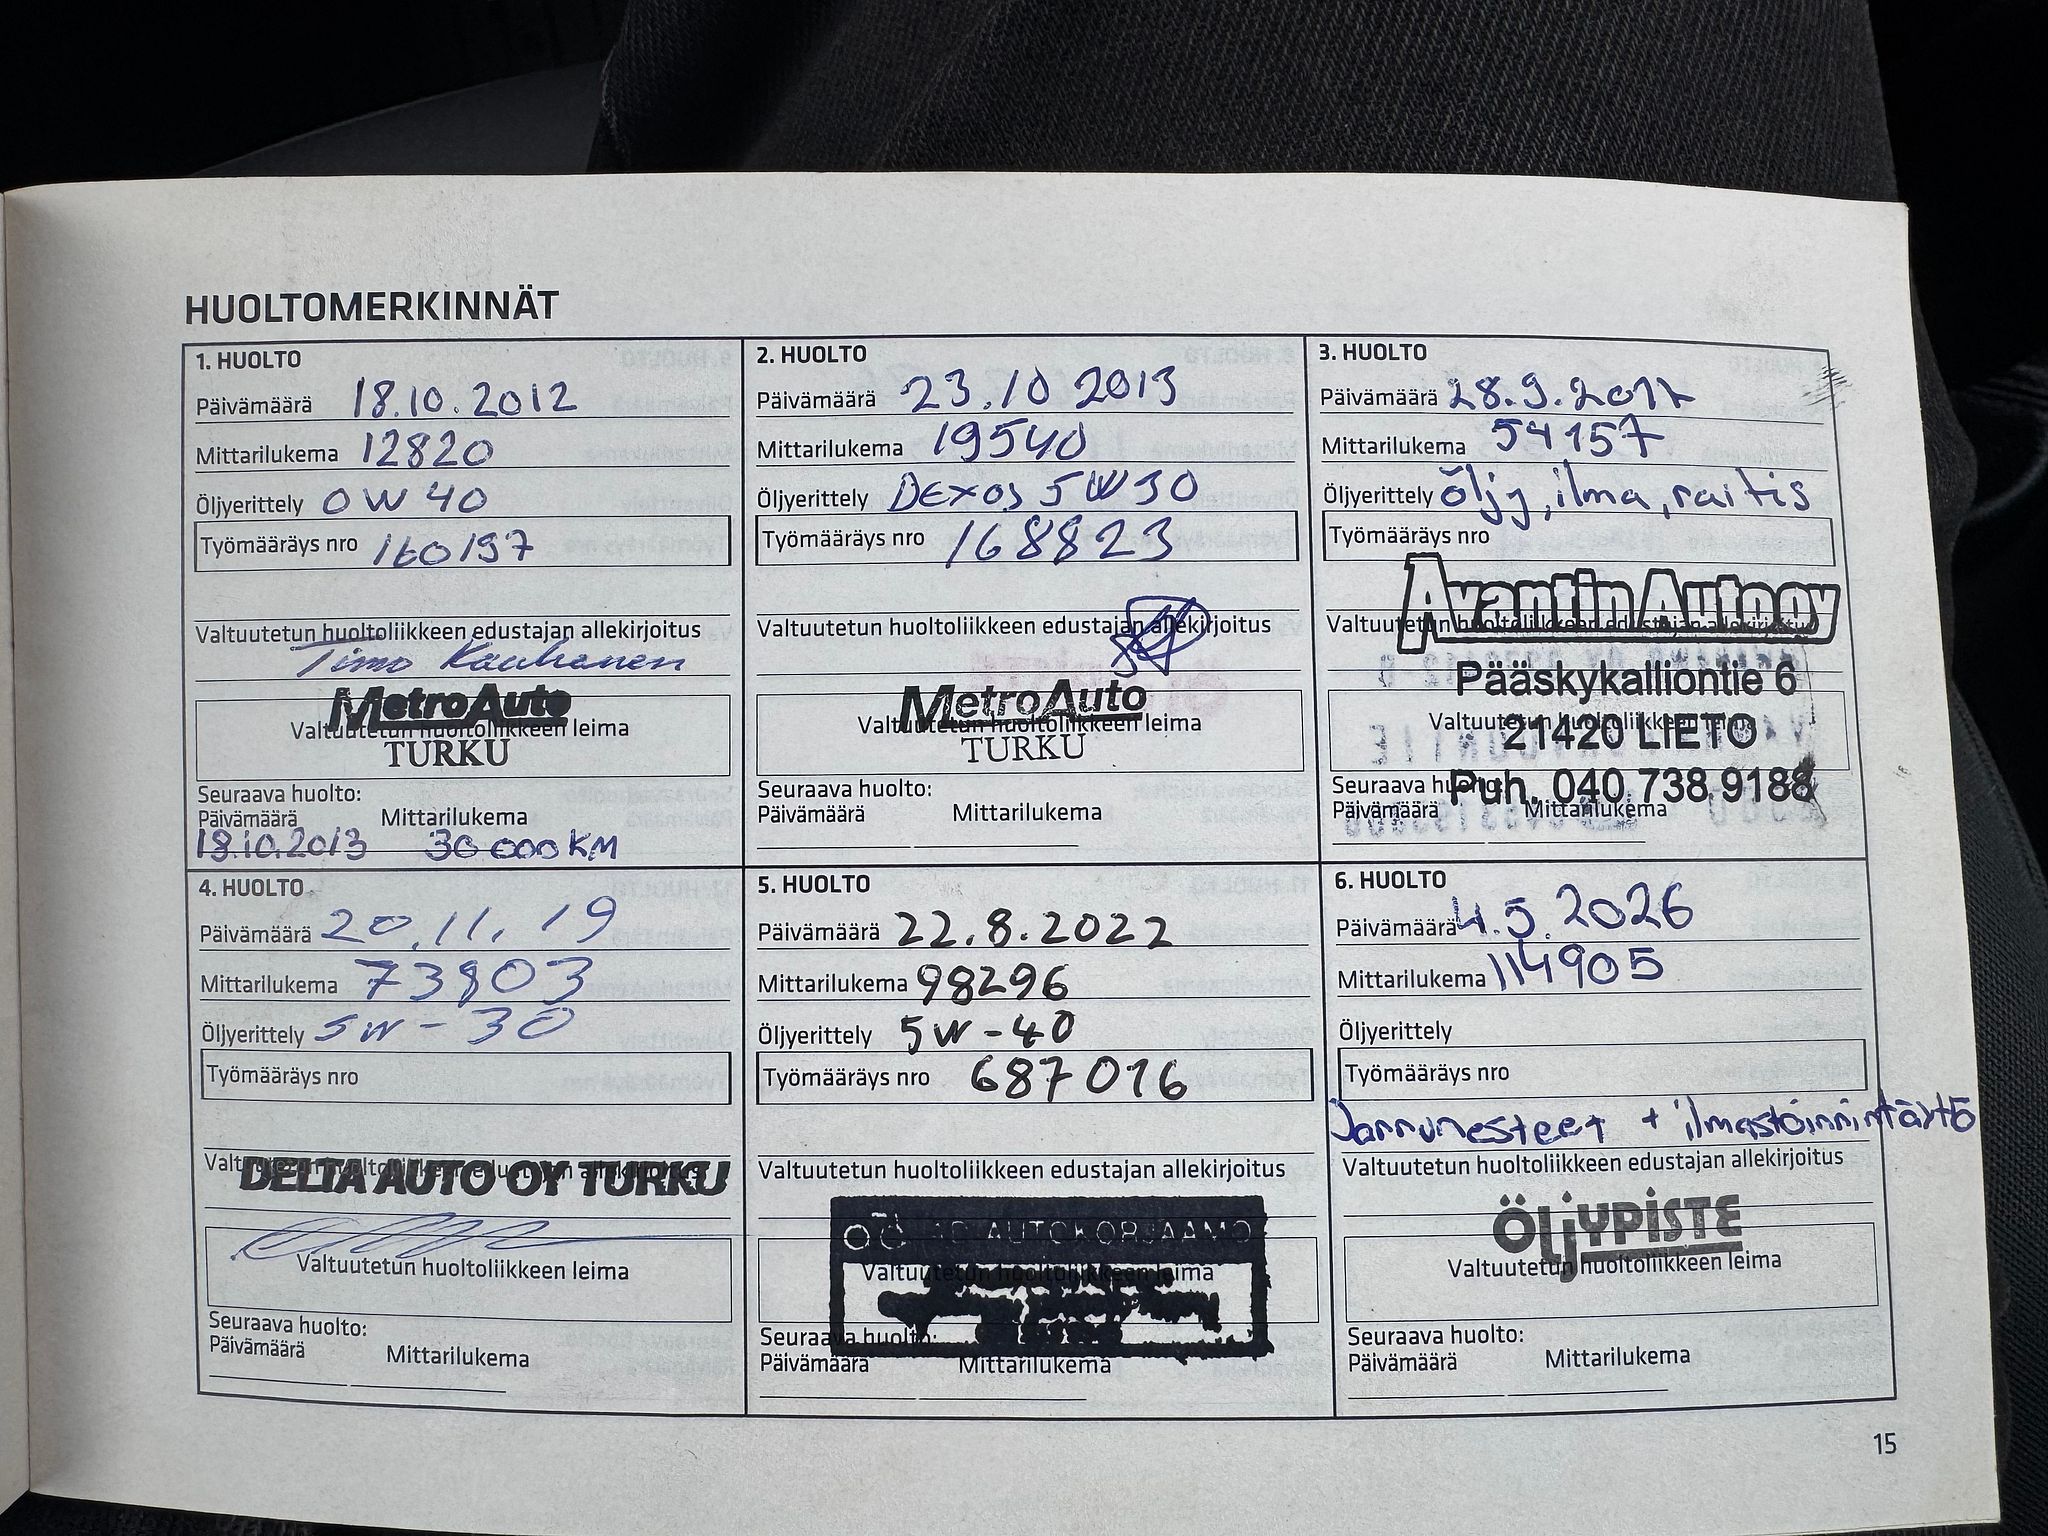 HUOLTOMERKINNÄT
1. HUOLTO
Päivämäärä 18.10.2012
Mittarilukema 12820
Öljyerittely 0W40
Työmääräys nro 160197
Valtuutetun huoltoliikkeen edustajan allekirjoitus
Timo Kauhanen
MetroAuto
Valtuutetun huoltoliikkeen leima
TURKU
Seuraava huolto:
Päivämäärä Mittarilukema
18.10.2013 30 000 KM
2. HUOLTO
Päivämäärä 23.10 2013
Mittarilukema 19540
Öljyerittely Dexos 5W30
Työmääräys nro 168823
Valtuutetun huoltoliikkeen edustajan allekirjoitus
MetroAuto
Valtuutetun huoltoliikkeen leima
TURKU
Seuraava huolto:
Päivämäärä Mittarilukema
3. HUOLTO
Päivämäärä 28.9.2017
Mittarilukema 54157
Öljyerittely öljy, ilma, raitis
Työmääräys nro
Avantin Auto oy
Valtuutetun huoltoliikkeen edustajan allekirjoitus
Pääskykalliontie 6
Valtuutetun huoltoliikkeen leima
21420 LIETO
Seuraava huolto:
Puh. 040 738 9188
Päivämäärä Mittarilukema
4. HUOLTO
Päivämäärä 20.11.19
Mittarilukema 73803
Öljyerittely 5W-30
Työmääräys nro
Valtuutetun huoltoliikkeen edustajan allekirjoitus
DELTA AUTO OY TURKU
Valtuutetun huoltoliikkeen leima
Seuraava huolto:
Päivämäärä Mittarilukema
5. HUOLTO
Päivämäärä 22.8.2022
Mittarilukema 98296
Öljyerittely 5W-40
Työmääräys nro 687016
Valtuutetun huoltoliikkeen edustajan allekirjoitus
AUTOKORJAAMO
Valtuutetun huoltoliikkeen leima
Seuraava huolto:
Päivämäärä Mittarilukema
6. HUOLTO
Päivämäärä 4.5.2026
Mittarilukema 114905
Öljyerittely
Työmääräys nro
Jarrunesteet + ilmastoinnintäyttö
Valtuutetun huoltoliikkeen edustajan allekirjoitus
ÖLJYPISTE
Valtuutetun huoltoliikkeen leima
Seuraava huolto:
Päivämäärä Mittarilukema
15